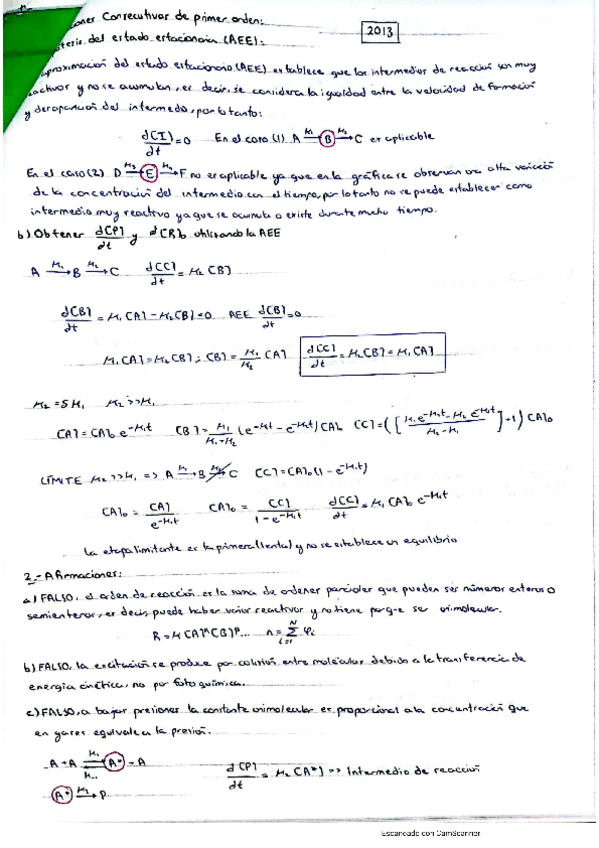 ones Consecutivas de primer orden:
2013
oteris del estado estacionario (AEE):
aproximación del estado estacionario (AEE) establece que los intermedios de reacción son muy
reactivos y no se acumulan, es decir, se considera la igualdad entre la velocidad de formación
y desaparición del intermedio, por lo tanto:
d[I]/dt = 0 En el caso (1) A →K₁ B →K₂ C es aplicable
En el caso (2) D →K₃ E →K₄ F no es aplicable ya que en la gráfica se observan una alta variación
de la concentración del intermedio con el tiempo, por lo tanto no se puede establecer como
intermedio muy reactivo ya que se acumula o existe durante mucho tiempo.
b) Obtener d[P]/dt y d[R]₀ utilizando la AEE
A →K₁ B →K₂ C d[C]/dt = K₂ [B]
d[B]/dt = K₁[A] - K₂[B] = 0 AEE d[B]/dt = 0
K₁[A] = K₂[B]; [B] = K₁/K₂ [A] d[C]/dt = K₂[B] = K₁[A]
K₂ = 5K₁ K₂ >> K₁
[A] = [A]₀ e^-K₁t [B] = K₁/(K₁-K₂) (e^-K₂t - e^-K₁t) [A]₀ [C] = ([K₁e^-K₂t - K₂e^-K₁t / K₂-K₁] + 1) [A]₀
LÍMITE K₂ >> K₁ => A →K₁ B →K₂ C [C] = [A]₀ (1 - e^-K₁t)
[A]₀ = [A]/e^-K₁t [A]₀ = [C]/1-e^-K₁t d[C]/dt = K₁ [A]₀ e^-K₁t
la etapa limitante es la primera (lenta) y no se establece un equilibrio
2.- Afirmaciones:
a) FALSO, el orden de reacción es la suma de ordenes parciales que pueden ser números enteros o
semienteros, es decir, puede haber varios reactivos y no tiene porq-e ser unimolecular.
R = K [A]^α [B]^β... n = Σ φᵢ i=1 N
b) FALSO, la excitación se produce por colisión entre moléculas debido a la transferencia de
energía cinética, no por fotoquímica.
c) FALSO, a bajas presiones la constante unimolecular es proporcional a la concentración que
en gases equivale a la presión.
A + A ⇌ K₁ K₋₁ A* + A
d[P]/dt = K₂ [A*] => Intermedio de reacción
A* →K₂ P
Escaneado con CamScanner